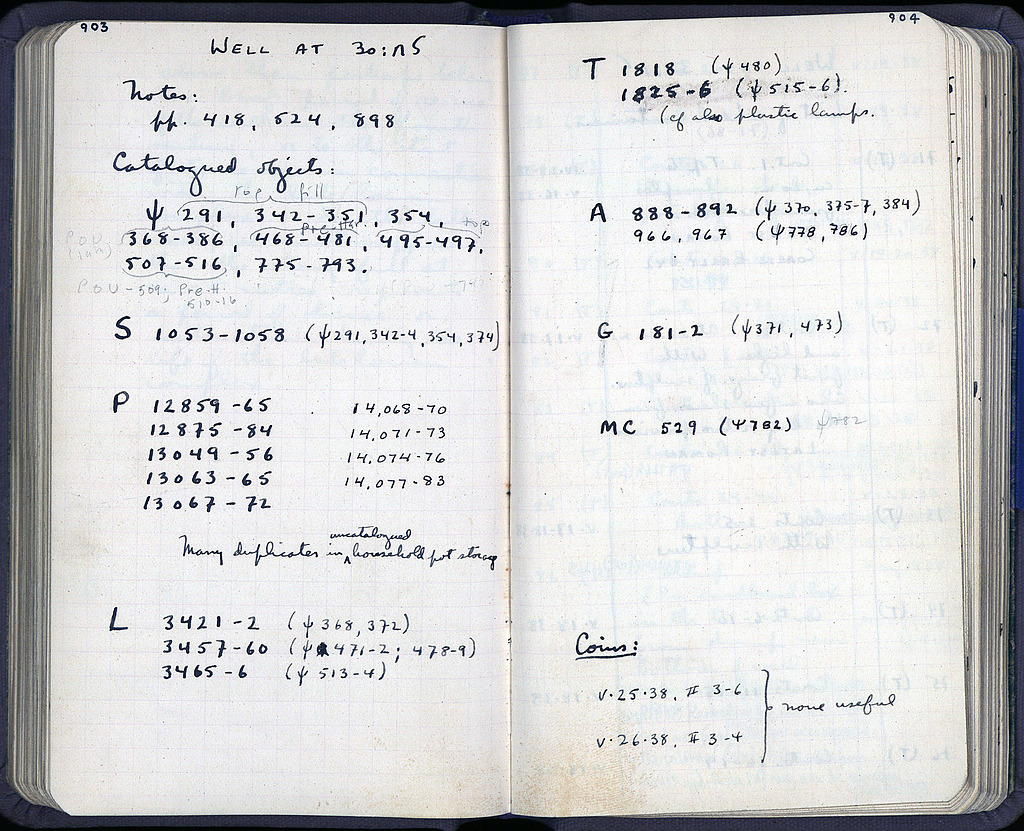 903
WELL AT 30:ΛS
Notes:
pp. 418, 524, 898
Catalogued objects:
top fill
ψ 291, 342-351, 354,
Pre-Her. top
P.O.U.
368-386, 468-481, 495-497,
507-516, 775-793.
P.O.U - 509; Pre-H.
510-16
S 1053-1058 (ψ291,342-4,354,374)
P 12859-65 14,068-70
12875-84 14,071-73
13049-56 14,074-76
13063-65 14,077-83
13067-72
uncatalogued
Many duplicates in household pot storage
L 3421-2 (ψ368,372)
3457-60 (ψ 471-2; 478-9)
3465-6 (ψ 513-4)
904
T 1818 (ψ480)
1825-6 (ψ515-6).
(cf also plastic lamps.
A 888-892 (ψ370, 375-7, 384)
966, 967 (ψ778, 786)
G 181-2 (ψ371, 473)
MC 529 (ψ782) ψ782
Coins:
V·25·38, # 3-6
none useful
V·26·38, # 3-4